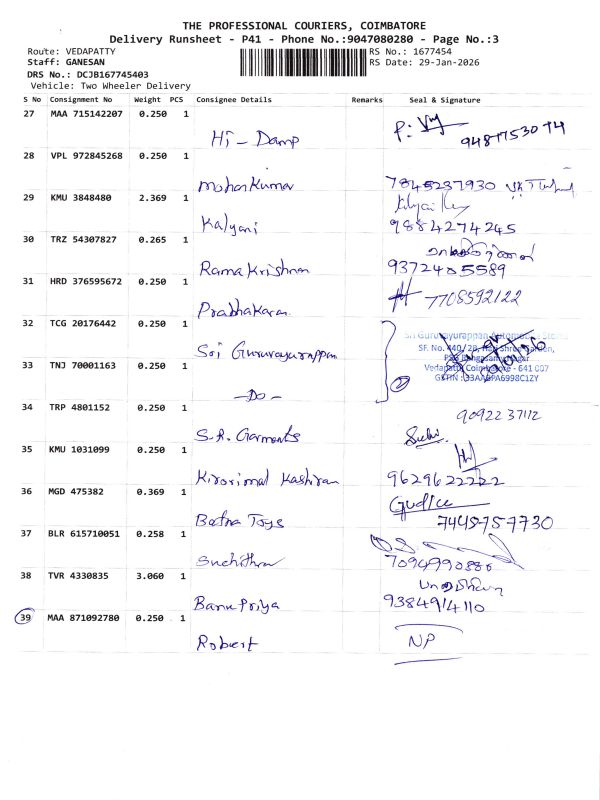 THE PROFESSIONAL COURIERS, COIMBATORE
Delivery Runsheet - P41 - Phone No.:9047080280 - Page No.:3
Route: VEDAPATTY RS No.: 1677454
Staff: GANESAN RS Date: 29-Jan-2026
DRS No.: DCJB167745403
Vehicle: Two Wheeler Delivery
S No Consignment No Weight PCS Consignee Details Remarks Seal & Signature
27 MAA 715142207 0.250 1
Hi - Damp 9487753074
28 VPL 972845268 0.250 1
Mohan Kumar 7845237930
29 KMU 3848480 2.369 1
Kalyani 9884274245
30 TRZ 54307827 0.265 1
Rama Krishnan 9372405589
31 HRD 376595672 0.250 1
Prabhakaran 7708592122
32 TCG 20176442 0.250 1
Sri Guruvayurappan
Sri Guruvayurappan
SF. No. 440/2B,
33 TNJ 70001163 0.250 1
Vedapatti Coimbatore - 641 007
-Do- 2
34 TRP 4801152 0.250 1
9092237112
S.R. Garments
35 KMU 1031099 0.250 1
Kirorimal Kashiram 9629622222
36 MGD 475382 0.369 1
Batna Toys 7445757730
37 BLR 615710051 0.258 1
Suchithra 7094990886
38 TVR 4330835 3.060 1
Banu Priya 9384914110
39 MAA 871092780 0.250 1
Robert NP